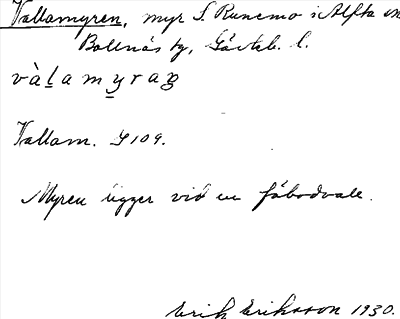 Vallamyren, myr S. Runemo i Alfta sn
Bollnäs tg, Gävleb. l.
vàlamyraŋ
Vallam. G 109.
Myren ligger vid en fäbodvall.
Erik Eriksson 1930.